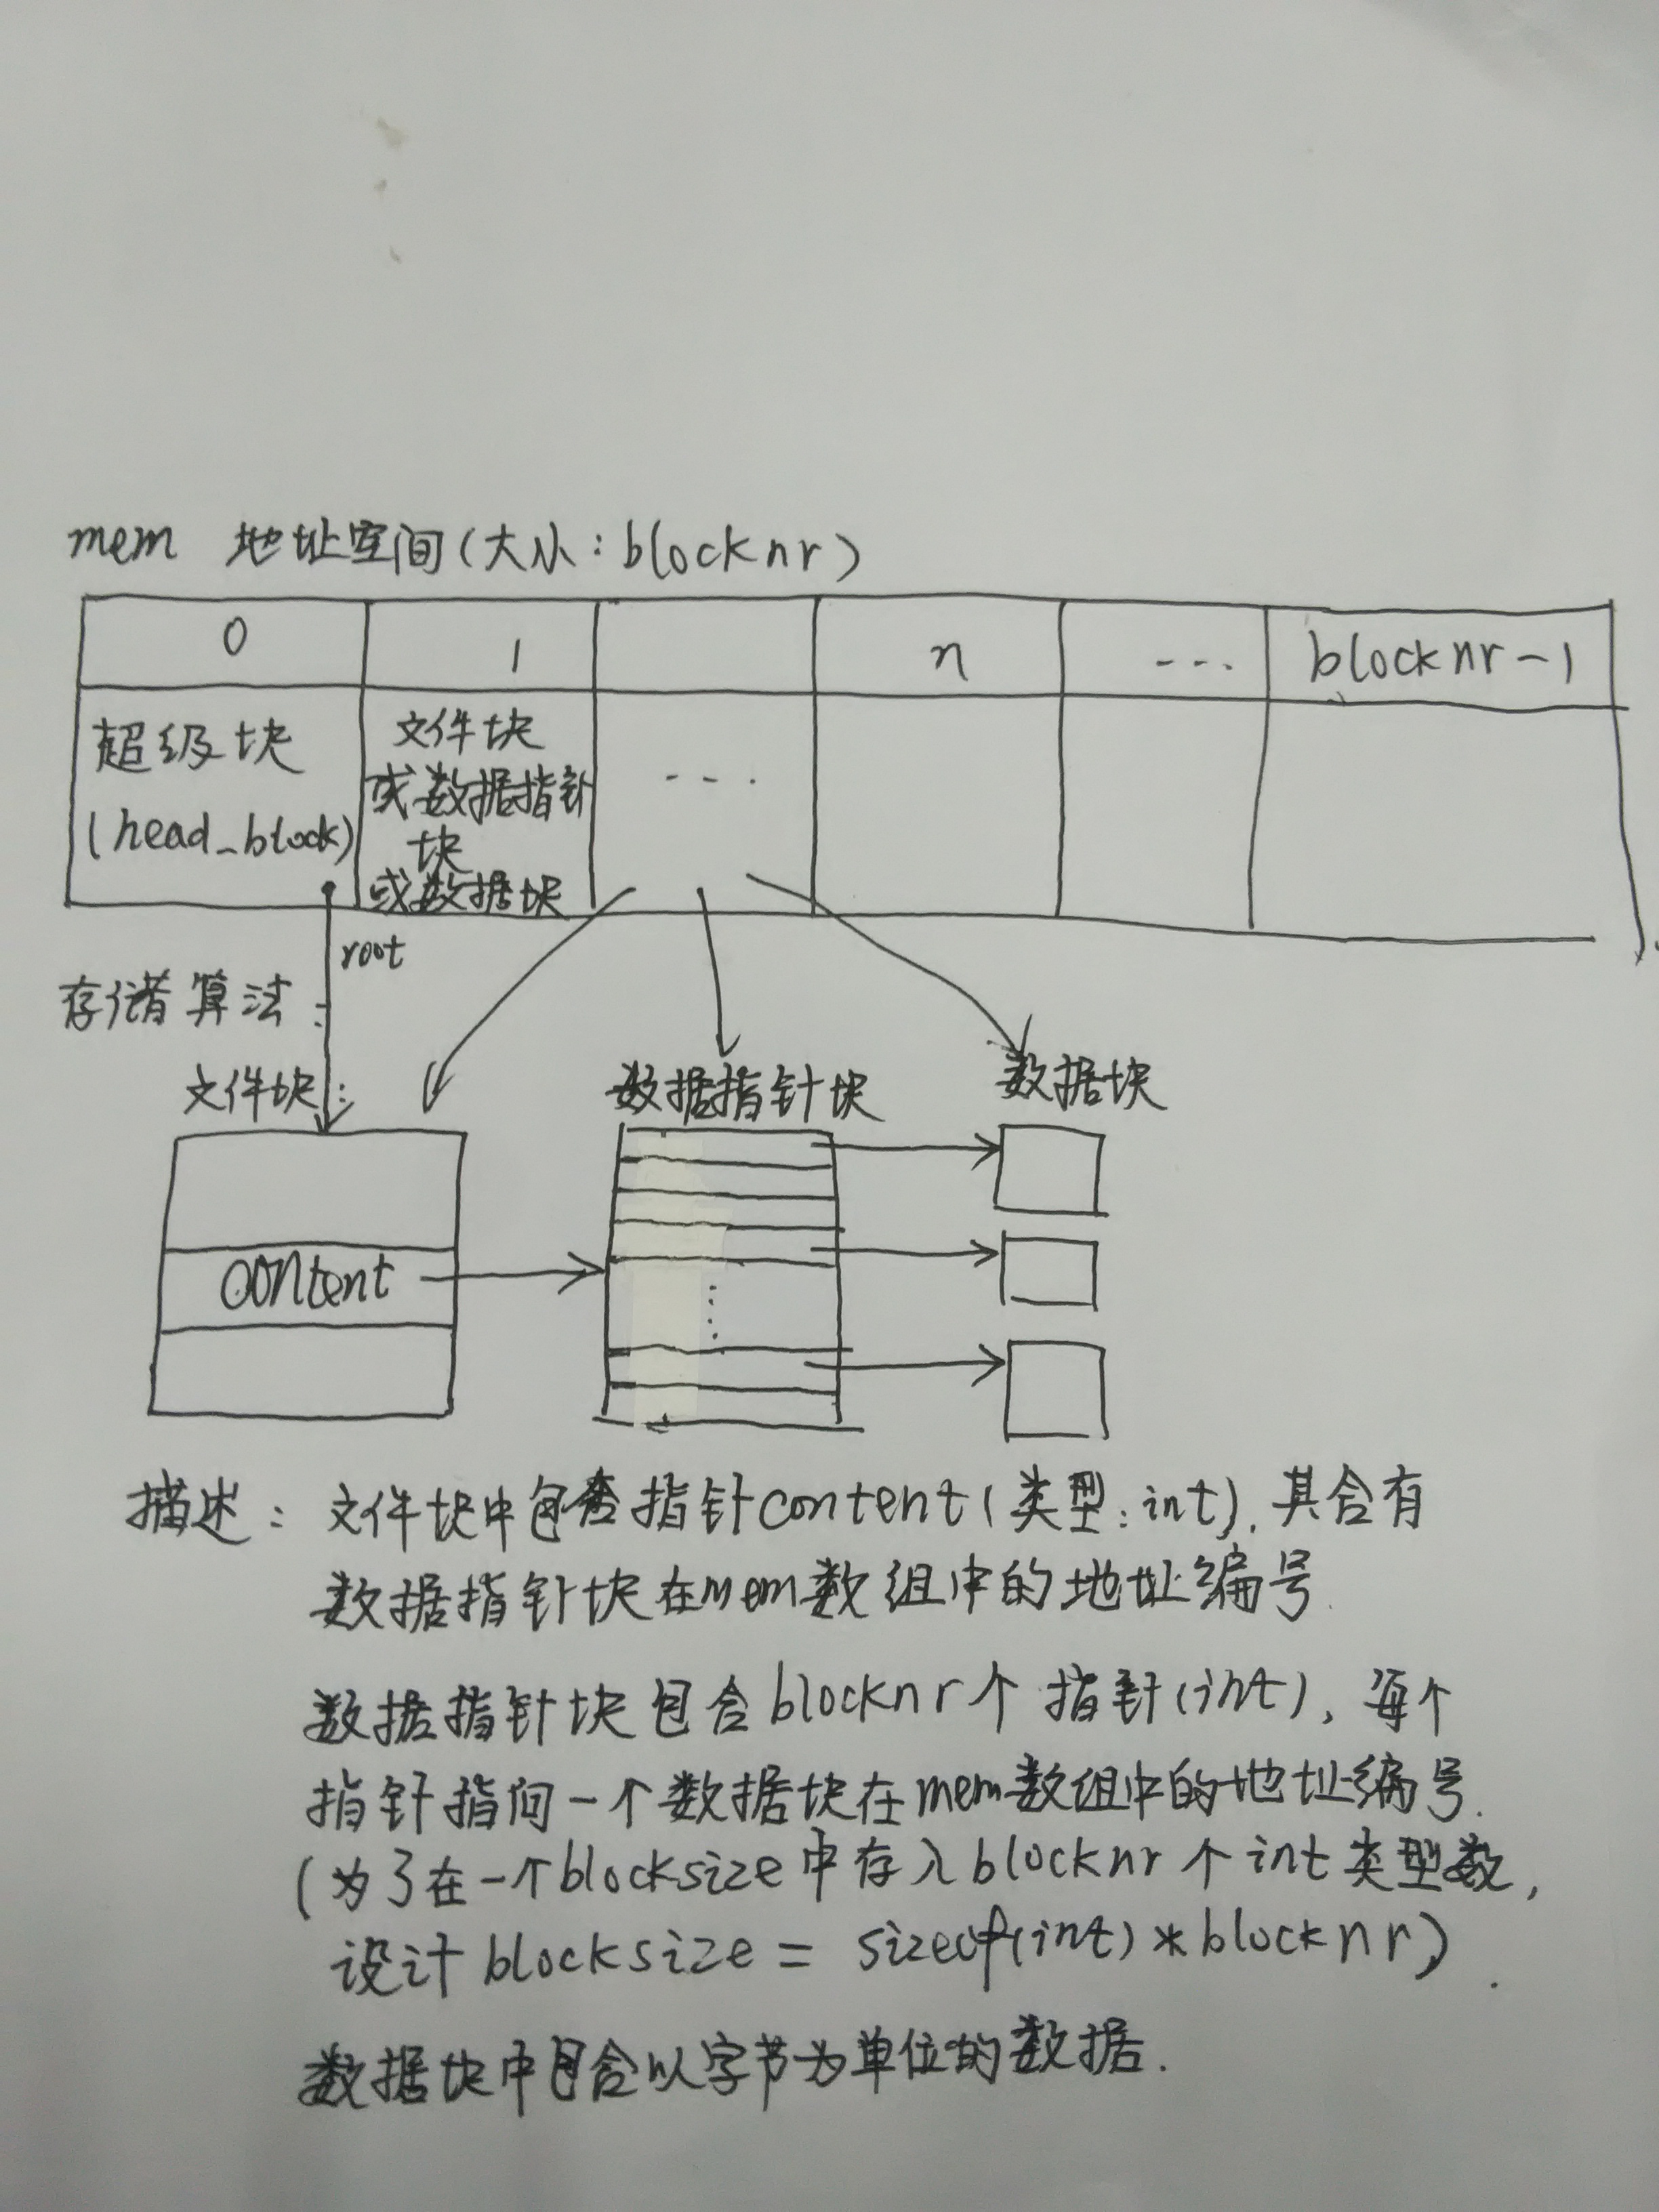 mem 地址空间(大小:blocknr)
0 1 n --- blocknr-1
超级块
(head_block)
文件块
或数据指针
块
或数据块
---
root
存储算法:
文件块:
数据指针块
数据块
content
描述: 文件块中包含指针content(类型:int),其含有
数据指针块在mem数组中的地址编号.
数据指针块包含blocknr个指针(int),每个
指针指向一个数据块在mem数组中的地址编号.
(为了在一个blocksize中存入blocknr个int类型数,
设计blocksize = sizeof(int)*blocknr).
数据块中包含以字节为单位的数据.